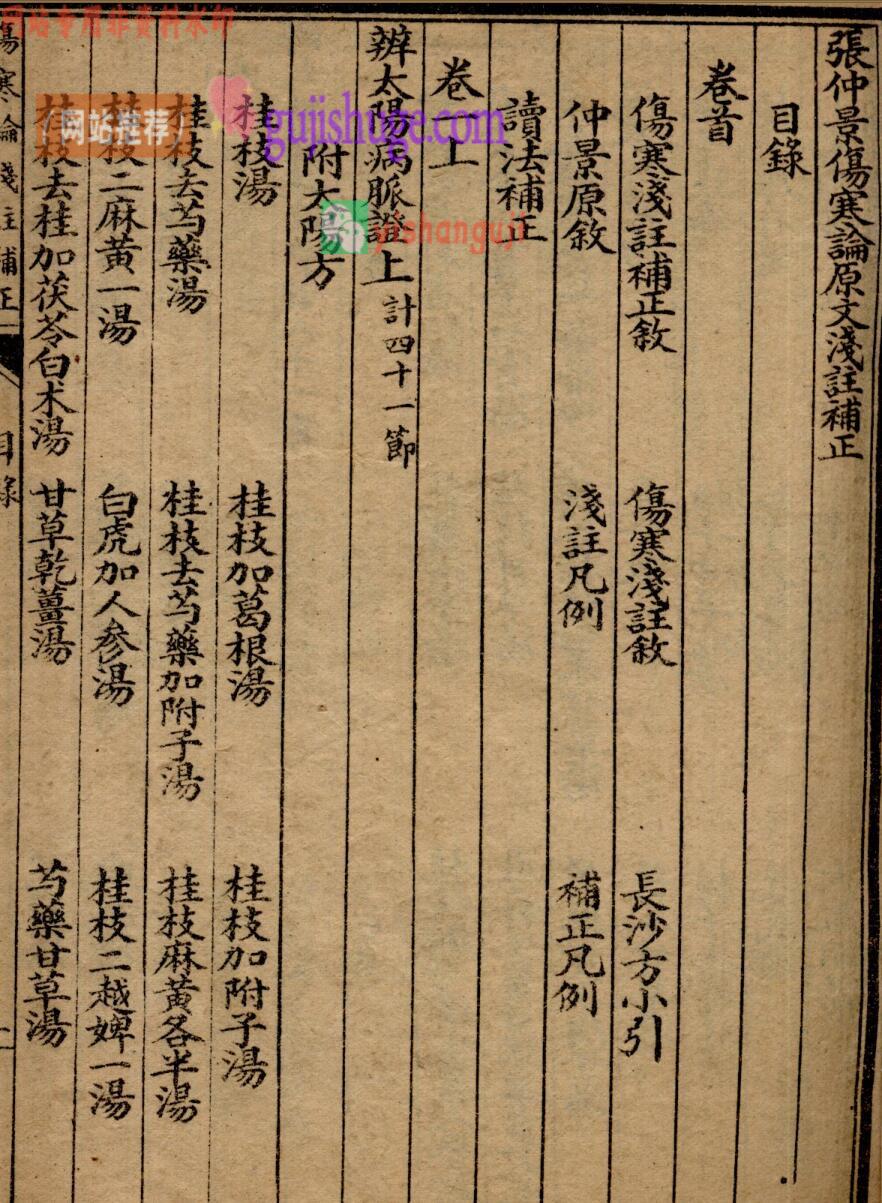 張仲景傷寒論原文淺註補正
目錄
卷首
傷寒淺註補正敘 傷寒淺註敘 長沙方小引
仲景原敘 淺註凡例 補正凡例
讀法補正
卷一上
辨太陽病脈證上 計四十一節
附太陽方
桂枝湯 桂枝加葛根湯 桂枝加附子湯
桂枝去芍藥湯 桂枝去芍藥加附子湯 桂枝麻黃各半湯
桂枝二麻黃一湯 白虎加人參湯 桂枝二越婢一湯
桂枝去桂加茯苓白朮湯 甘草乾薑湯 芍藥甘草湯
傷寒論淺註補正 目錄
网站专用非资料水印
网站推荐
gujishuge.com
shanguji